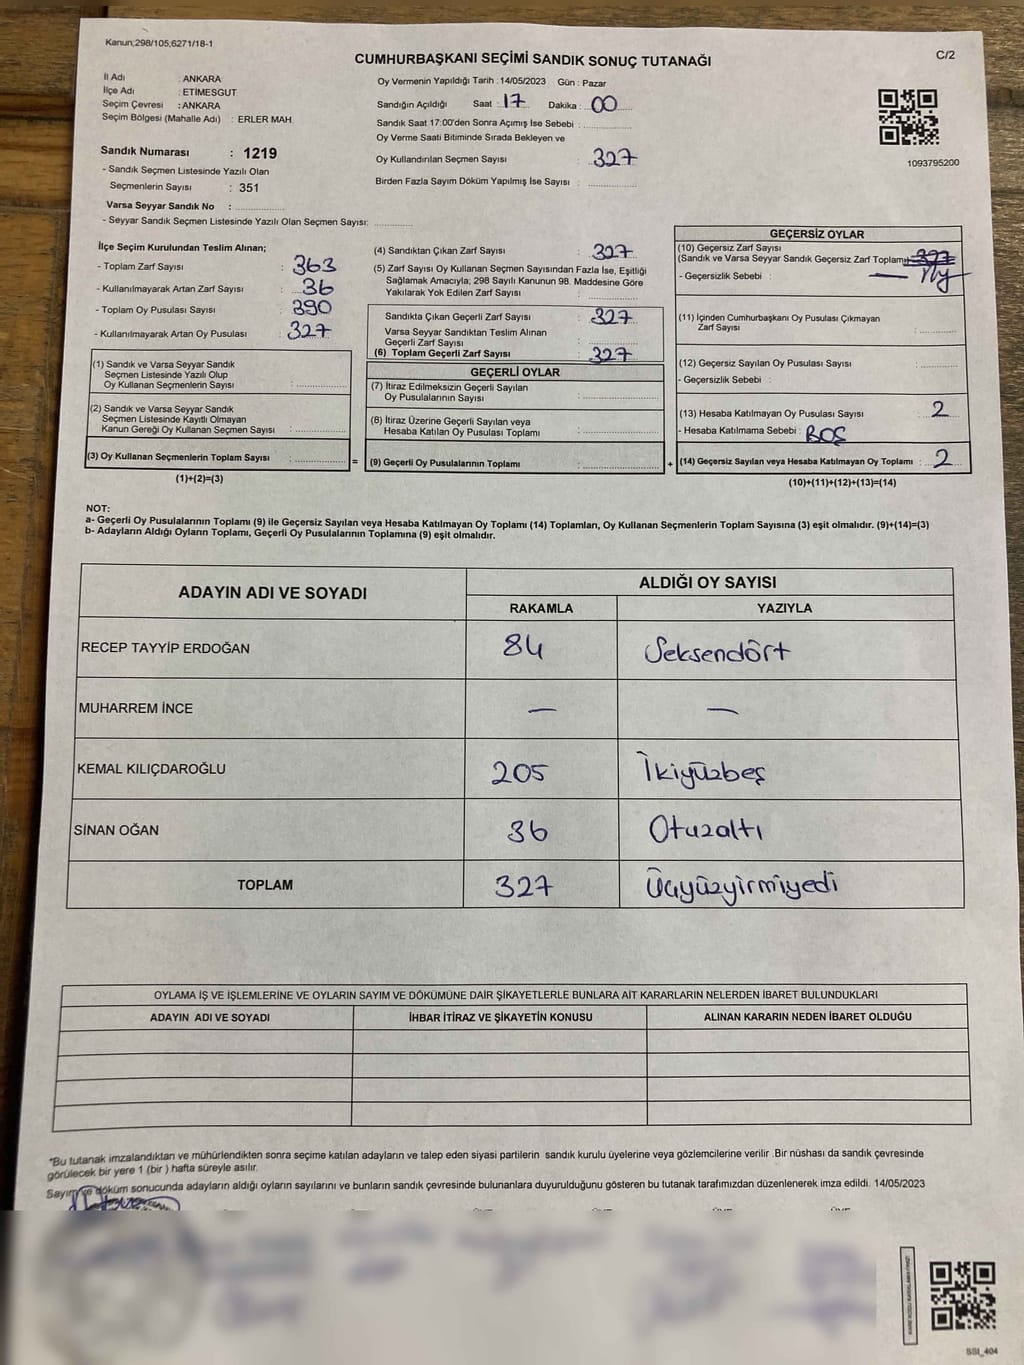 Kanun;298/105;6271/18-1
C/2
CUMHURBAŞKANI SEÇİMİ SANDIK SONUÇ TUTANAĞI
İl Adı : ANKARA
İlçe Adı : ETİMESGUT
Seçim Çevresi : ANKARA
Seçim Bölgesi (Mahalle Adı) : ERLER MAH.
Sandık Numarası : 1219
- Sandık Seçmen Listesinde Yazılı Olan
Seçmenlerin Sayısı : 351
Varsa Seyyar Sandık No :
- Seyyar Sandık Seçmen Listesinde Yazılı Olan Seçmen Sayısı:
Oy Vermenin Yapıldığı Tarih : 14/05/2023 Gün : Pazar
Sandığın Açıldığı Saat : 17 Dakika : 00
Sandık Saat 17:00'den Sonra Açımış İse Sebebi :
Oy Verme Saati Bitiminde Sırada Bekleyen ve
Oy Kullandırılan Seçmen Sayısı : 327
Birden Fazla Sayım Döküm Yapılmış İse Sayısı :
1093795200
İlçe Seçim Kurulundan Teslim Alınan;
- Toplam Zarf Sayısı : 363
- Kullanılmayarak Artan Zarf Sayısı : 36
- Toplam Oy Pusulası Sayısı : 390
- Kullanılmayarak Artan Oy Pusulası : 327
(1) Sandık ve Varsa Seyyar Sandık
Seçmen Listesinde Yazılı Olup
Oy Kullanan Seçmenlerin Sayısı :
(2) Sandık ve Varsa Seyyar Sandık
Seçmen Listesinde Kayıtlı Olmayan
Kanun Gereği Oy Kullanan Seçmen Sayısı :
(3) Oy Kullanan Seçmenlerin Toplam Sayısı :
(1)+(2)=(3)
(4) Sandıktan Çıkan Zarf Sayısı : 327
(5) Zarf Sayısı Oy Kullanan Seçmen Sayısından Fazla İse, Eşitliği
Sağlamak Amacıyla; 298 Sayılı Kanunun 98. Maddesine Göre
Yakılarak Yok Edilen Zarf Sayısı :
Sandıkta Çıkan Geçerli Zarf Sayısı : 327
Varsa Seyyar Sandıktan Teslim Alınan
Geçerli Zarf Sayısı :
(6) Toplam Geçerli Zarf Sayısı : 327
GEÇERLİ OYLAR
(7) İtiraz Edilmeksizin Geçerli Sayılan
Oy Pusulalarının Sayısı :
(8) İtiraz Üzerine Geçerli Sayılan veya
Hesaba Katılan Oy Pusulası Toplamı :
= (9) Geçerli Oy Pusulalarının Toplamı :
GEÇERSİZ OYLAR
(10) Geçersiz Zarf Sayısı
(Sandık ve Varsa Seyyar Sandık Geçersiz Zarf Toplamı) : 327
- Geçersizlik Sebebi :
(11) İçinden Cumhurbaşkanı Oy Pusulası Çıkmayan
Zarf Sayısı :
(12) Geçersiz Sayılan Oy Pusulası Sayısı :
- Geçersizlik Sebebi :
(13) Hesaba Katılmayan Oy Pusulası Sayısı : 2
- Hesaba Katılmama Sebebi : BOŞ
+ (14) Geçersiz Sayılan veya Hesaba Katılmayan Oy Toplamı : 2
(10)+(11)+(12)+(13)=(14)
NOT:
a- Geçerli Oy Pusulalarının Toplamı (9) ile Geçersiz Sayılan veya Hesaba Katılmayan Oy Toplamı (14) Toplamları, Oy Kullanan Seçmenlerin Toplam Sayısına (3) eşit olmalıdır. (9)+(14)=(3)
b- Adayların Aldığı Oyların Toplamı, Geçerli Oy Pusulalarının Toplamına (9) eşit olmalıdır.
ADAYIN ADI VE SOYADI
ALDIĞI OY SAYISI
RAKAMLA YAZIYLA
RECEP TAYYİP ERDOĞAN 84 Seksendört
MUHARREM İNCE — —
KEMAL KILIÇDAROĞLU 205 İkiyüzbeş
SİNAN OĞAN 36 Otuzaltı
TOPLAM 327 Üçyüzyirmiyedi
OYLAMA İŞ VE İŞLEMLERİNE VE OYLARIN SAYIM VE DÖKÜMÜNE DAİR ŞİKAYETLERLE BUNLARA AİT KARARLARIN NELERDEN İBARET BULUNDUKLARI
ADAYIN ADI VE SOYADI İHBAR İTİRAZ VE ŞİKAYETİN KONUSU ALINAN KARARIN NEDEN İBARET OLDUĞU
*Bu tutanak imzalandıktan ve mühürlendikten sonra seçime katılan adayların ve talep eden siyasi partilerin sandık kurulu üyelerine veya gözlemcilerine verilir .Bir nüshası da sandık çevresinde
görülecek bir yere 1 (bir ) hafta süreyle asılır.
Sayım ve döküm sonucunda adayların aldığı oyların sayılarını ve bunların sandık çevresinde bulunanlara duyurulduğunu gösteren bu tutanak tarafımızdan düzenlenerek imza edildi. 14/05/2023
SSI_404